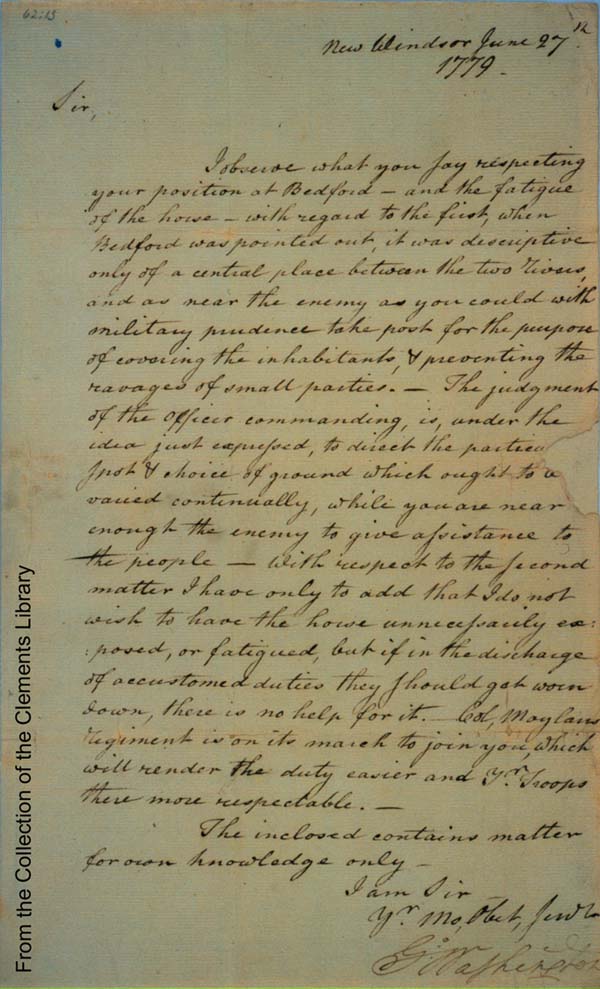 62:15
New Windsor June 27th
1779.
Sir,
I observe what you say respecting
your position at Bedford – and the fatigue
of the horse – with regard to the first, when
Bedford was pointed out, it was descriptive
only of a central place between the two rivers,
and as near the enemy as you could with
military prudence take post for the purpose
of covering the inhabitants, & preventing the
ravages of small parties. – The judgment
of the officer commanding, is, under the
idea just expressed, to direct the particu
spot & choice of ground which ought to
varied continually, while you are near
enough the enemy to give assistance to
the people – with respect to the second
matter I have only to add that I do not
wish to have the horse unnecessarily ex:
:posed, or fatigued, but if in the discharge
of accustomed duties they should get worn
down, there is no help for it. – Col, Moylans
regiment is on its march to join you, which
will render the duty easier and Yr. Troops
there more respectable. –
The inclosed contains matter
for own knowledge only –
I am Sir
Yr. Mo, Obet, Servt
Go: Washington
From the Collection of the Clements Library